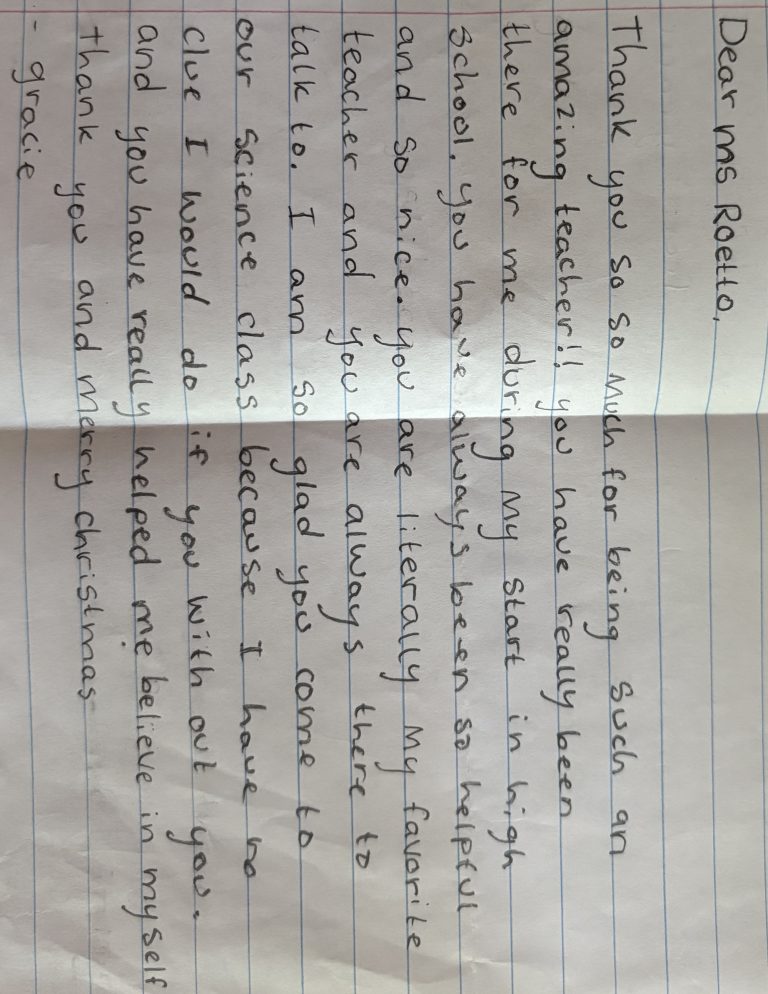 Dear ms Roetto,
Thank you so so much for being such an
amazing teacher!! you have really been
there for me during my start in high
school. you have always been so helpful
and so nice. you are literally my favorite
teacher and you are always there to
talk to. I am so glad you come to
our science class because I have no
clue I would do if you with out you.
and you have really helped me believe in myself
thank you and merry christmas
- gracie